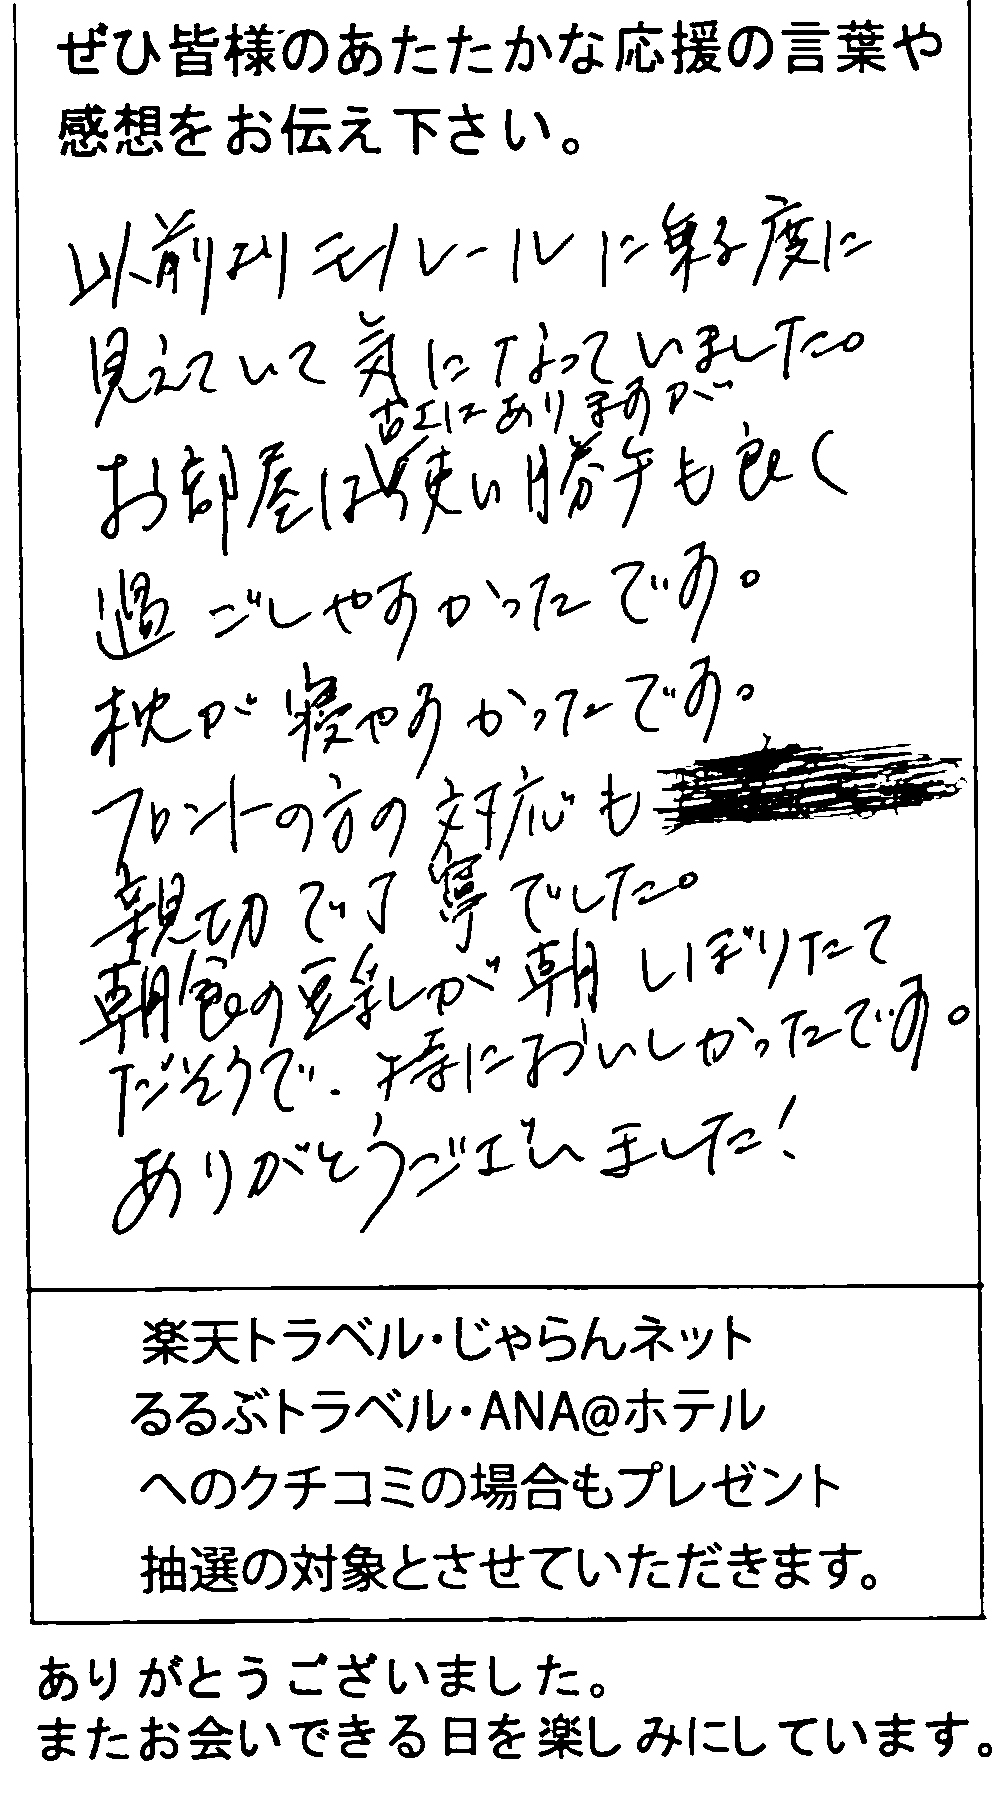 ぜひ皆様のあたたかな応援の言葉や
感想をお伝え下さい。
以前よりモノレールに乗る度に
見えていて気になっていました。
古さはありますが
お部屋は使い勝手も良く
過ごしやすかったです。
枕が寝やすかったです。
フロントの方の対応も
親切で丁寧でした。
朝食の豆乳が朝しぼりたて
だそうで、特においしかったです。
ありがとうございました!
楽天トラベル・じゃらんネット
るるぶトラベル・ANA@ホテル
へのクチコミの場合もプレゼント
抽選の対象とさせていただきます。
ありがとうございました。
またお会いできる日を楽しみにしています。